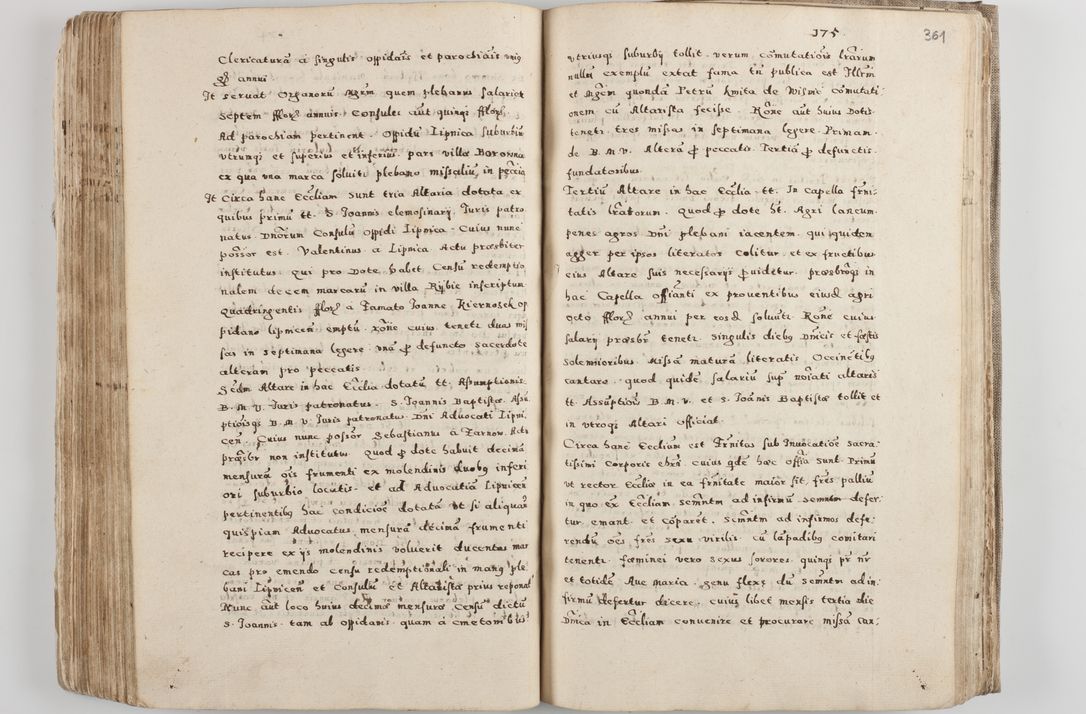 Clericaturā á singulis oppidanis et parochianis unig
annui
It servat Organorū Mgrm quem plebanus salariat
septem flor annuis Consules aūt quinqs flor
Ad parochiam pertinent. Oppidū Lipnica suburbiū
utrunqs et superius et inferius. pars villae Borowna
ex qua una marca solvitr plebano missaliū in pecūia
It Circa hanc Eccliam sunt tria Altaria dotata ex
quibus primū tt. S. Joannis elemosinarij Juris patro
natus Dnōrum Consulū oppidi Lipnica. Cuius nunc
possor est. Valentinus a Lipnica Actu praesbiter
institutus. qui pro Dote habet Censū redemptio
nalem decem marcarū in villa Rijbie inscriptum
Quadringentis flor á Famato Joanne Kiernosek op
pidano lipnicen emptū rōne cuius tenetr duas mis
sas in septimana legere unā p defuncto sacerdote
alteram pro peccatis
Scdm Altare in hac Ecclia dotatū tt. Assumptionis
B. M. V. Juris patronatus. S. Joannis Baptistae Assu
ptiōisqs B. M. V. Juris patronatus Dni Advocati Lipni
cen. Cuius nunc possor Sebastianus á Tarnow. Actu
praesbr non institutus. Quod p dote habuit decimā
mensurā ois frumenti ex molendinis duobus inferi
ori suburbio locatis. et ad Advocatiā Lipnicen
pertinentibus hac condicioē dotatā Ut si aliquan
quispiam Advocatus mensurā decimā frumenti
recipere ex ijs molendinis voluerit ducentas mar
cas pro emendo censu redemptionali in manus ple
bani Lipnicen et Consulū et Altaristae prius reponat
Nunc aūt loco huius decimae mensurae Censū dictus
S. Joannis tam ab oppidanis quam á cmetonibus
175
361
utriusqs suburbij tollit. verum cōmutatiōis lrārum
nullū exemplū extat fama tn publica est Illem
et Mgcm quondā Petrū Kmita de Wisnic cōmutati
onem cū Altarista fecisse. Rōne aūt huius Dotis
tenetr tres missas in septimana legere. Primam
de B. M. V. Alterā p peccatis. Tertiā p defunctis
fundatoribus
Tertiū Altare in hac Ecclia tt. In capella frni:
tatis lrātorum. Quod p dote ht. Agri laneum
penes agros Dni plebani iacentem. qui quidem
agger per ipsos literatos colitur et ex fructibus
eius Altare suis necessarijs pvidetur. praesbroqs in
hac Capella offianti ex proventibus eiusd agri
octo flor annui per eosd solvuntr Rōne cuius
salarij praesbr tenetr. Singulis diebus Dnicis et festis
solemnioribus Missā maturā literatis Occinētibus
cantare. quod quidē salariū sup nōiati altaris
tt Assūptiōis B. M. V. et S. Joānis Baptistae tollit et
in utroqs Altari officiat
Circa hanc Eccliam est Frnitas sub Invocatiōe sacra:
tissimi Corporis chri. cuius qde haec offia sunt. Primū
ut rector Eccliae in ea frnitate maior sit, fres palliū
in quo ex Eccliam semntm ad infirmū semntm defer:
tur emant et cōparet. Scmntm ad infirmos defe:
rendū oēs fres sexu virilis. cū lāpadibus comitari
tenentr. faeminei vero sexus sorores quinqs pr nr
et totidē Ave Maria. genu flexe dū semntm ad in:
firmū defertur dicere. cuius libet mensis tertia die
Dnica in Eccliam convenire et procurare missā can: